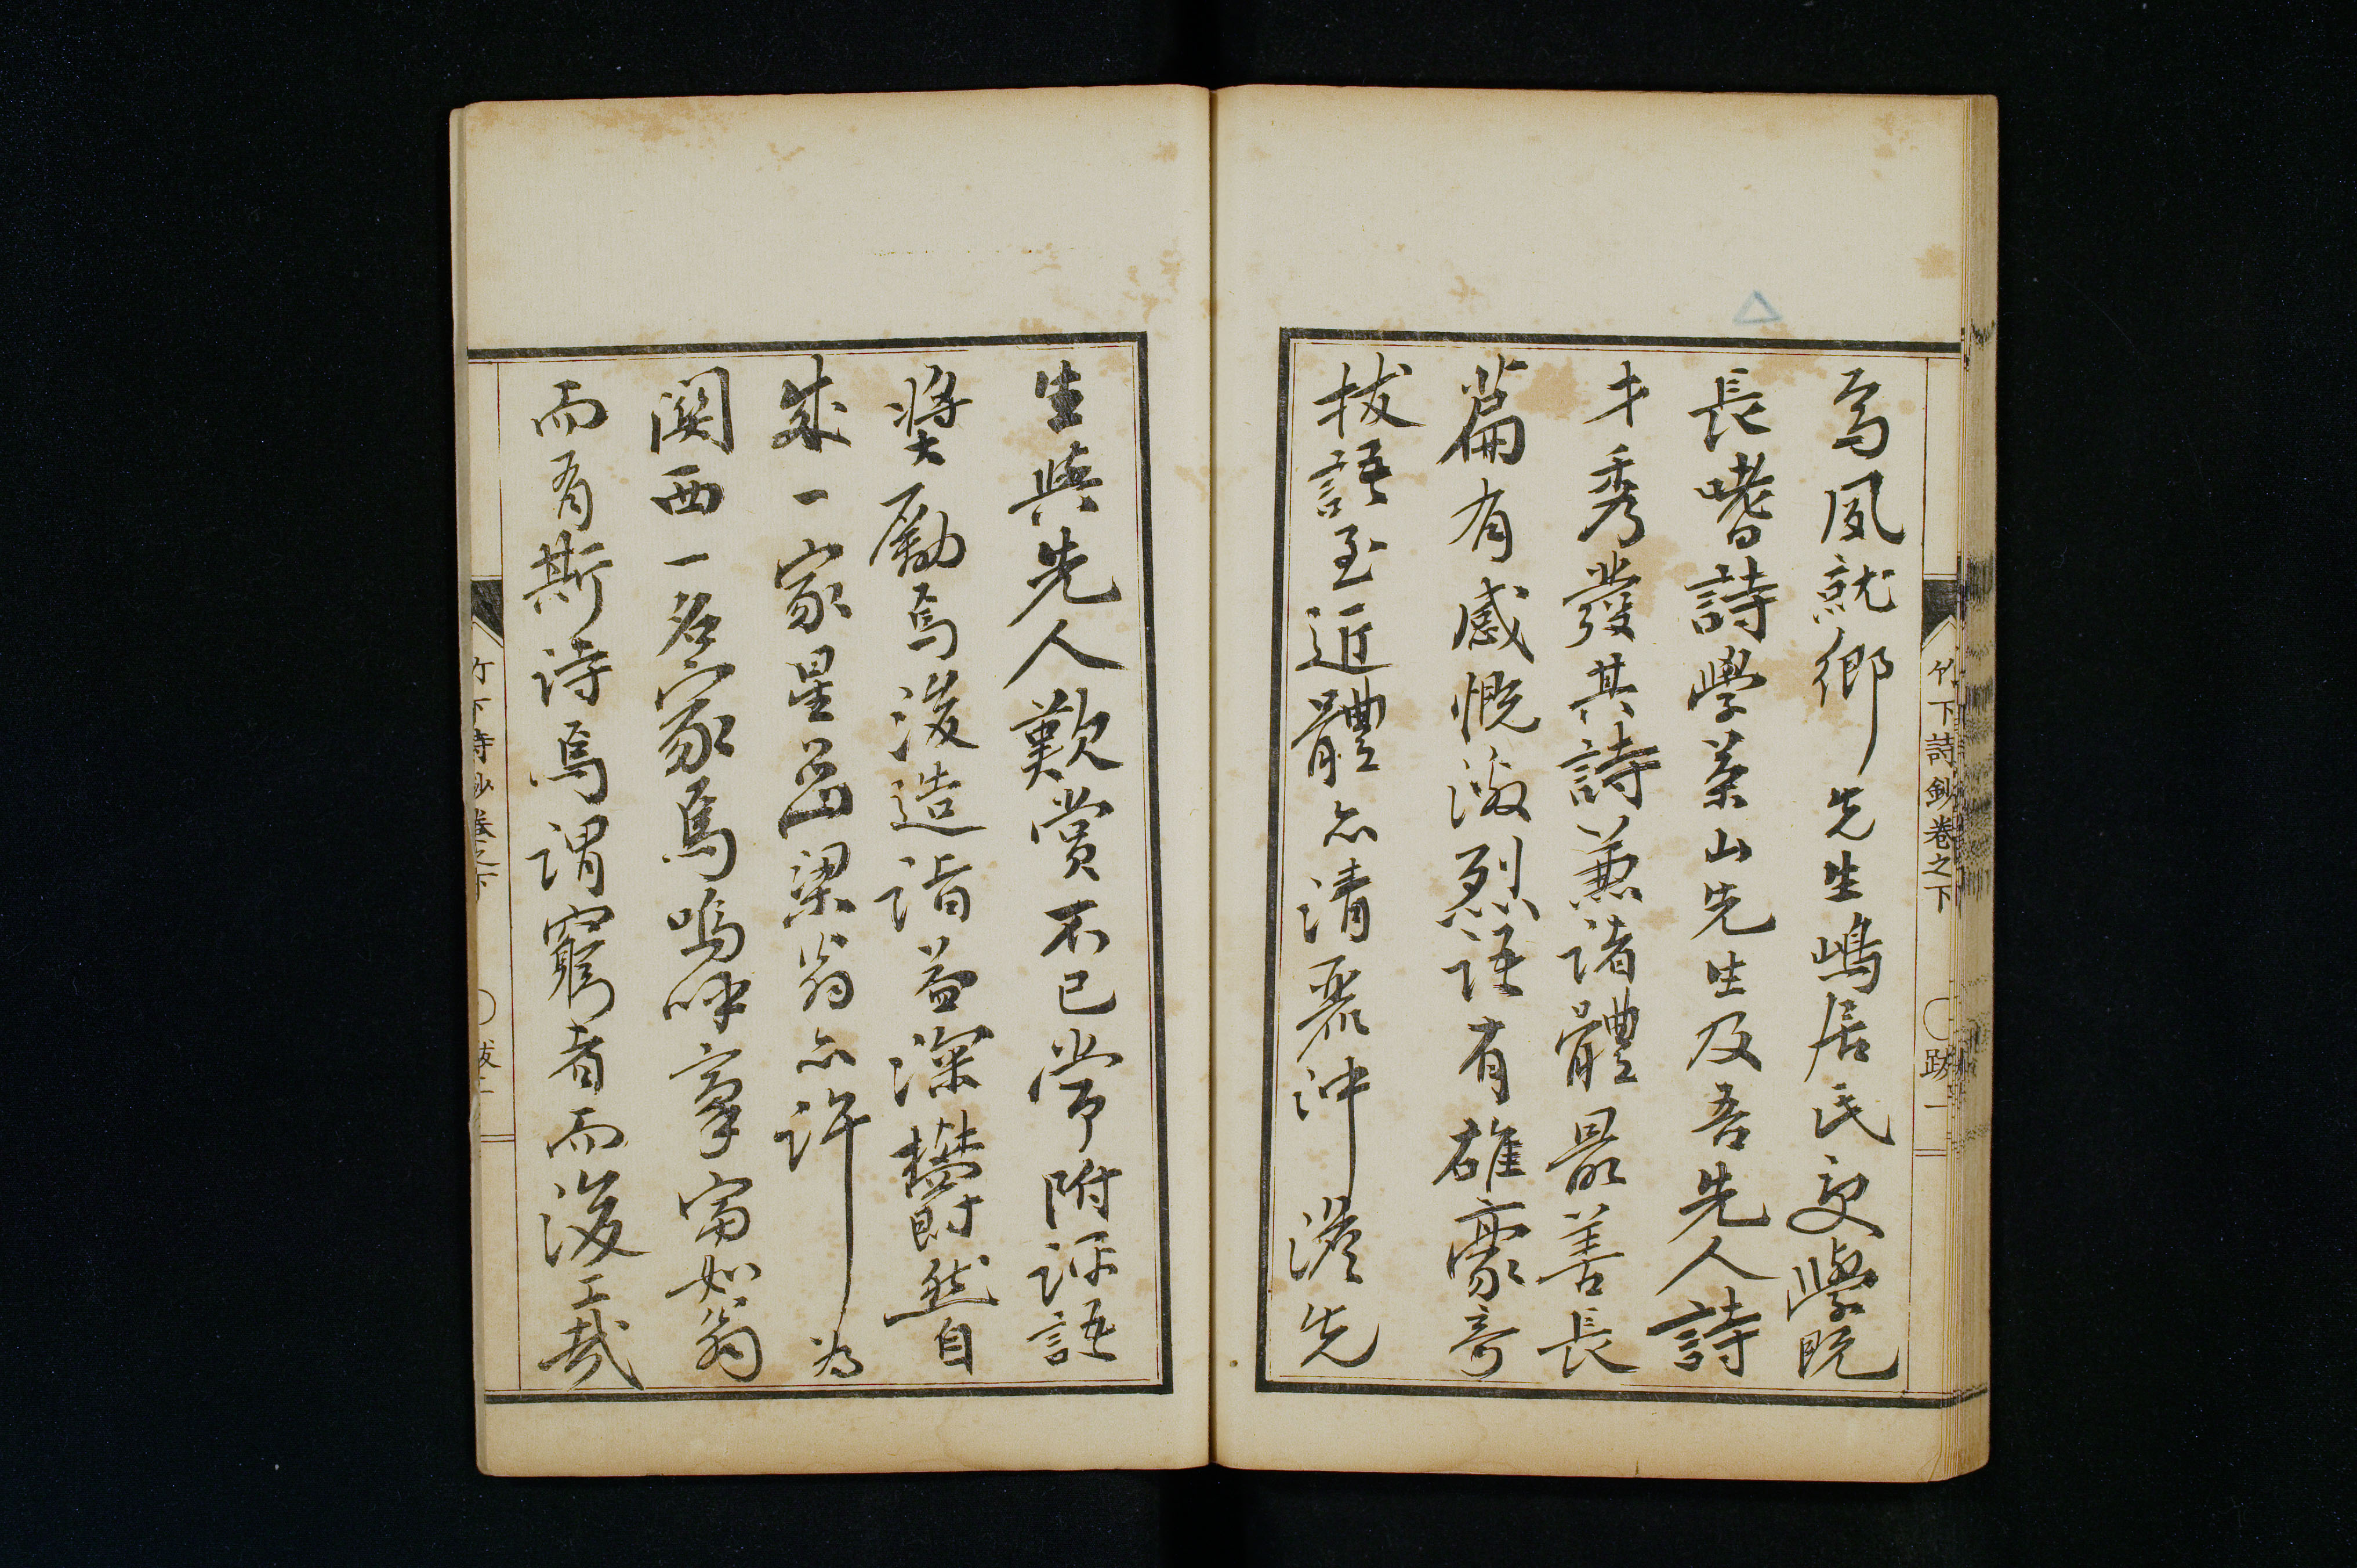 焉夙就鄉先生嶋居氏受學既
長嗜詩學茶山先生及吾先人詩
才秀發其詩兼諸體最善長
篇有感慨激烈語有雄豪奇
拔語至近體亦清麗沖澹先
竹下詩鈔卷之下
○跋一
生與先人歎賞不已常附評語
奬勵焉後造詣益深欝然自
成一家星巖梁翁亦許為
関西一名家焉嗚呼富如翁
而有斯詩焉謂窮者而後工哉
竹下詩鈔卷之下
○跋